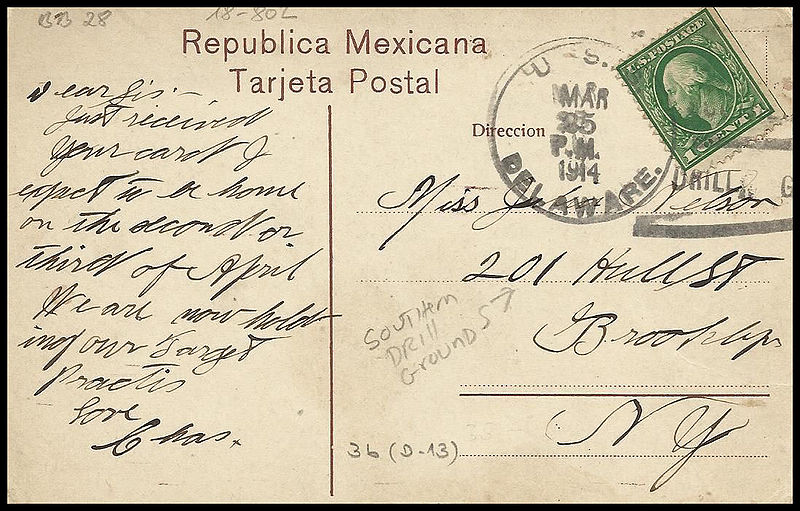 BB 28
18-80L
Republica Mexicana
Tarjeta Postal
Dear Sis:-
Just received
Your card I
expect to be home
on the second or
third of April
We are now hold-
ing our Target
Practis
Love
Chas.
U.S.
MAR
25
P.M.
1914
DELAWARE.
DRILL G
U.S. POSTAGE
1 CENT 1
Direccion
Miss Nelson
201 Hull St
Brooklyn
NY
SOUTHERN
DRILL
GROUNDS
36 (D-13)